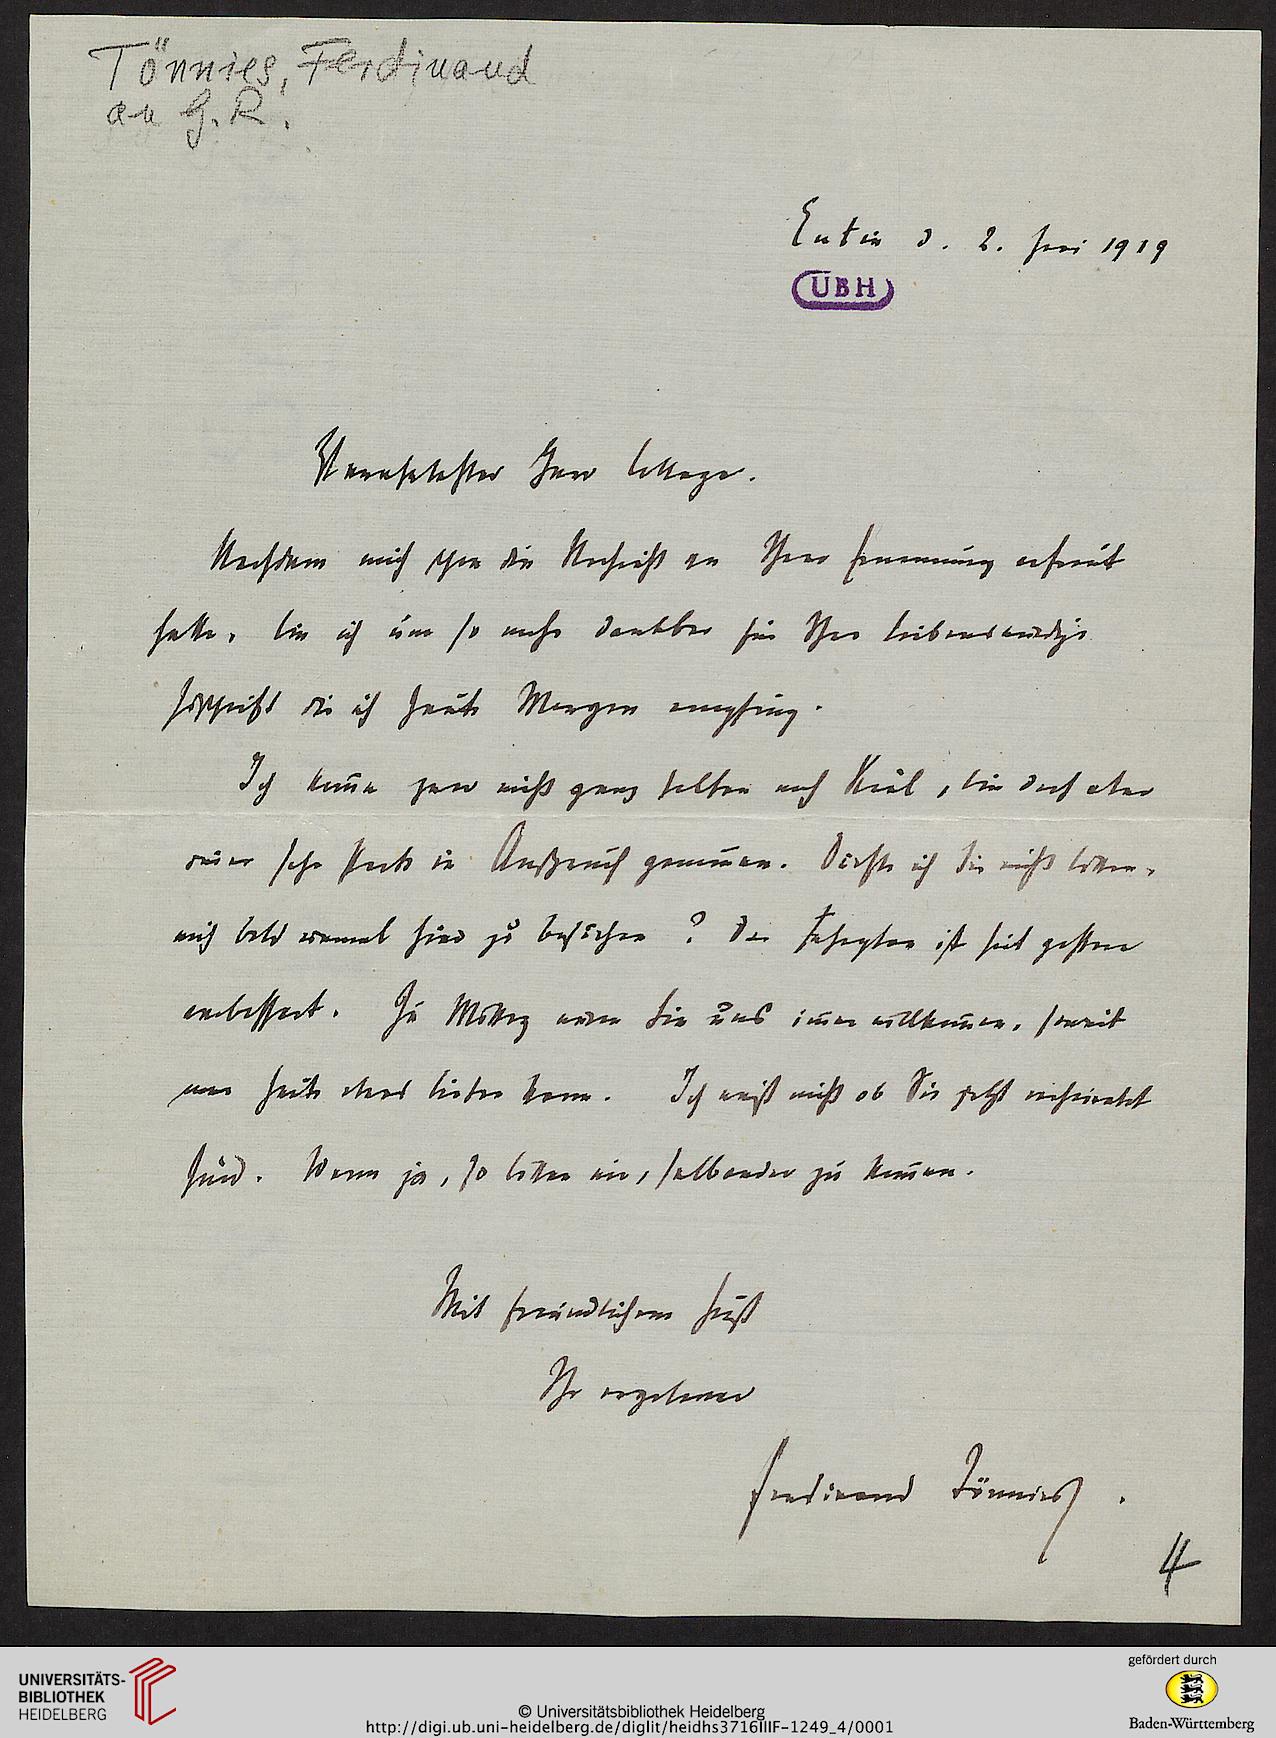 Tönnies, Ferdinand
an G. R.
Eutin d. 2. Juni 1919
UBH
Verehrtester Herr College.
Nachdem mich schon die Nachricht von Ihrer Ernennung erfreut
hatte, bin ich um so mehr dankbar für Ihre liebenswürdige
Zuschrift die ich heute Morgen empfing.
Ich komme zwar nicht ganz selten nach Kiel, bin dort aber
immer sehr stark in Anspruch genommen. Dürfte ich Sie nicht bitten,
mich bald einmal hier zu besuchen? Der Fahrplan ist seit gestern
verbessert. Zu Mittag wären Sie uns immer willkommen, soweit
man heute etwas bieten kann. Ich weiß nicht ob Sie jetzt verheiratet
sind. Wenn ja, so bitten wir, selbander zu kommen.
Mit freundlichem Gruß
Ihr ergebener
Ferdinand Tönnies.
4
UNIVERSITÄTS-
BIBLIOTHEK
HEIDELBERG
© Universitätsbibliothek Heidelberg
http://digi.ub.uni-heidelberg.de/diglit/heidhs3716IIIF-1249_4/0001
gefördert durch
Baden-Württemberg